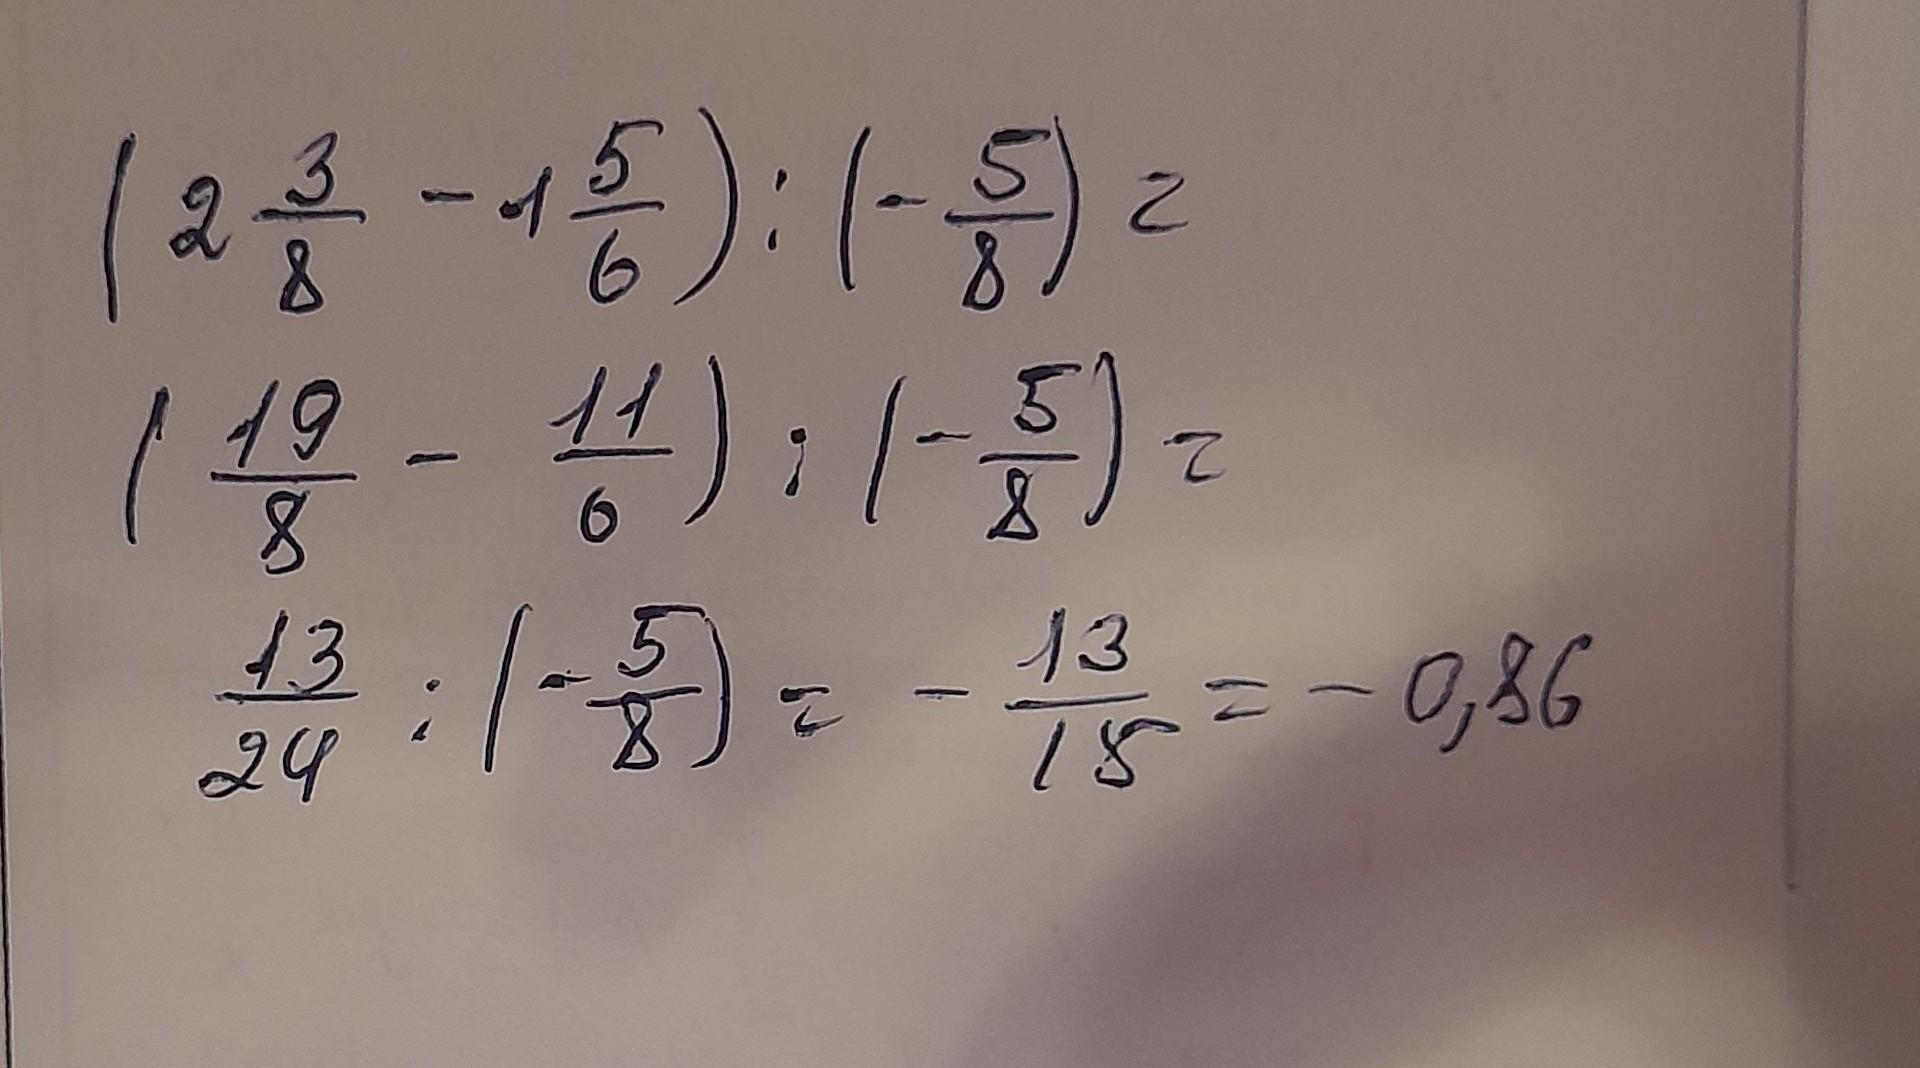 (2 3/8 - 1 5/6) : (- 5/8) =
(19/8 - 11/6) : (- 5/8) =
13/24 : (- 5/8) = - 13/15 = - 0,86